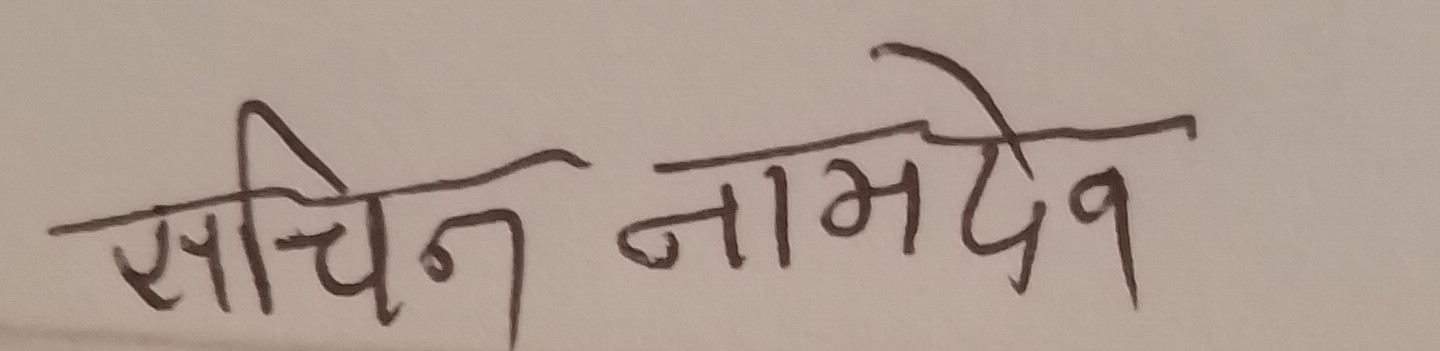 सचिन नामदेव